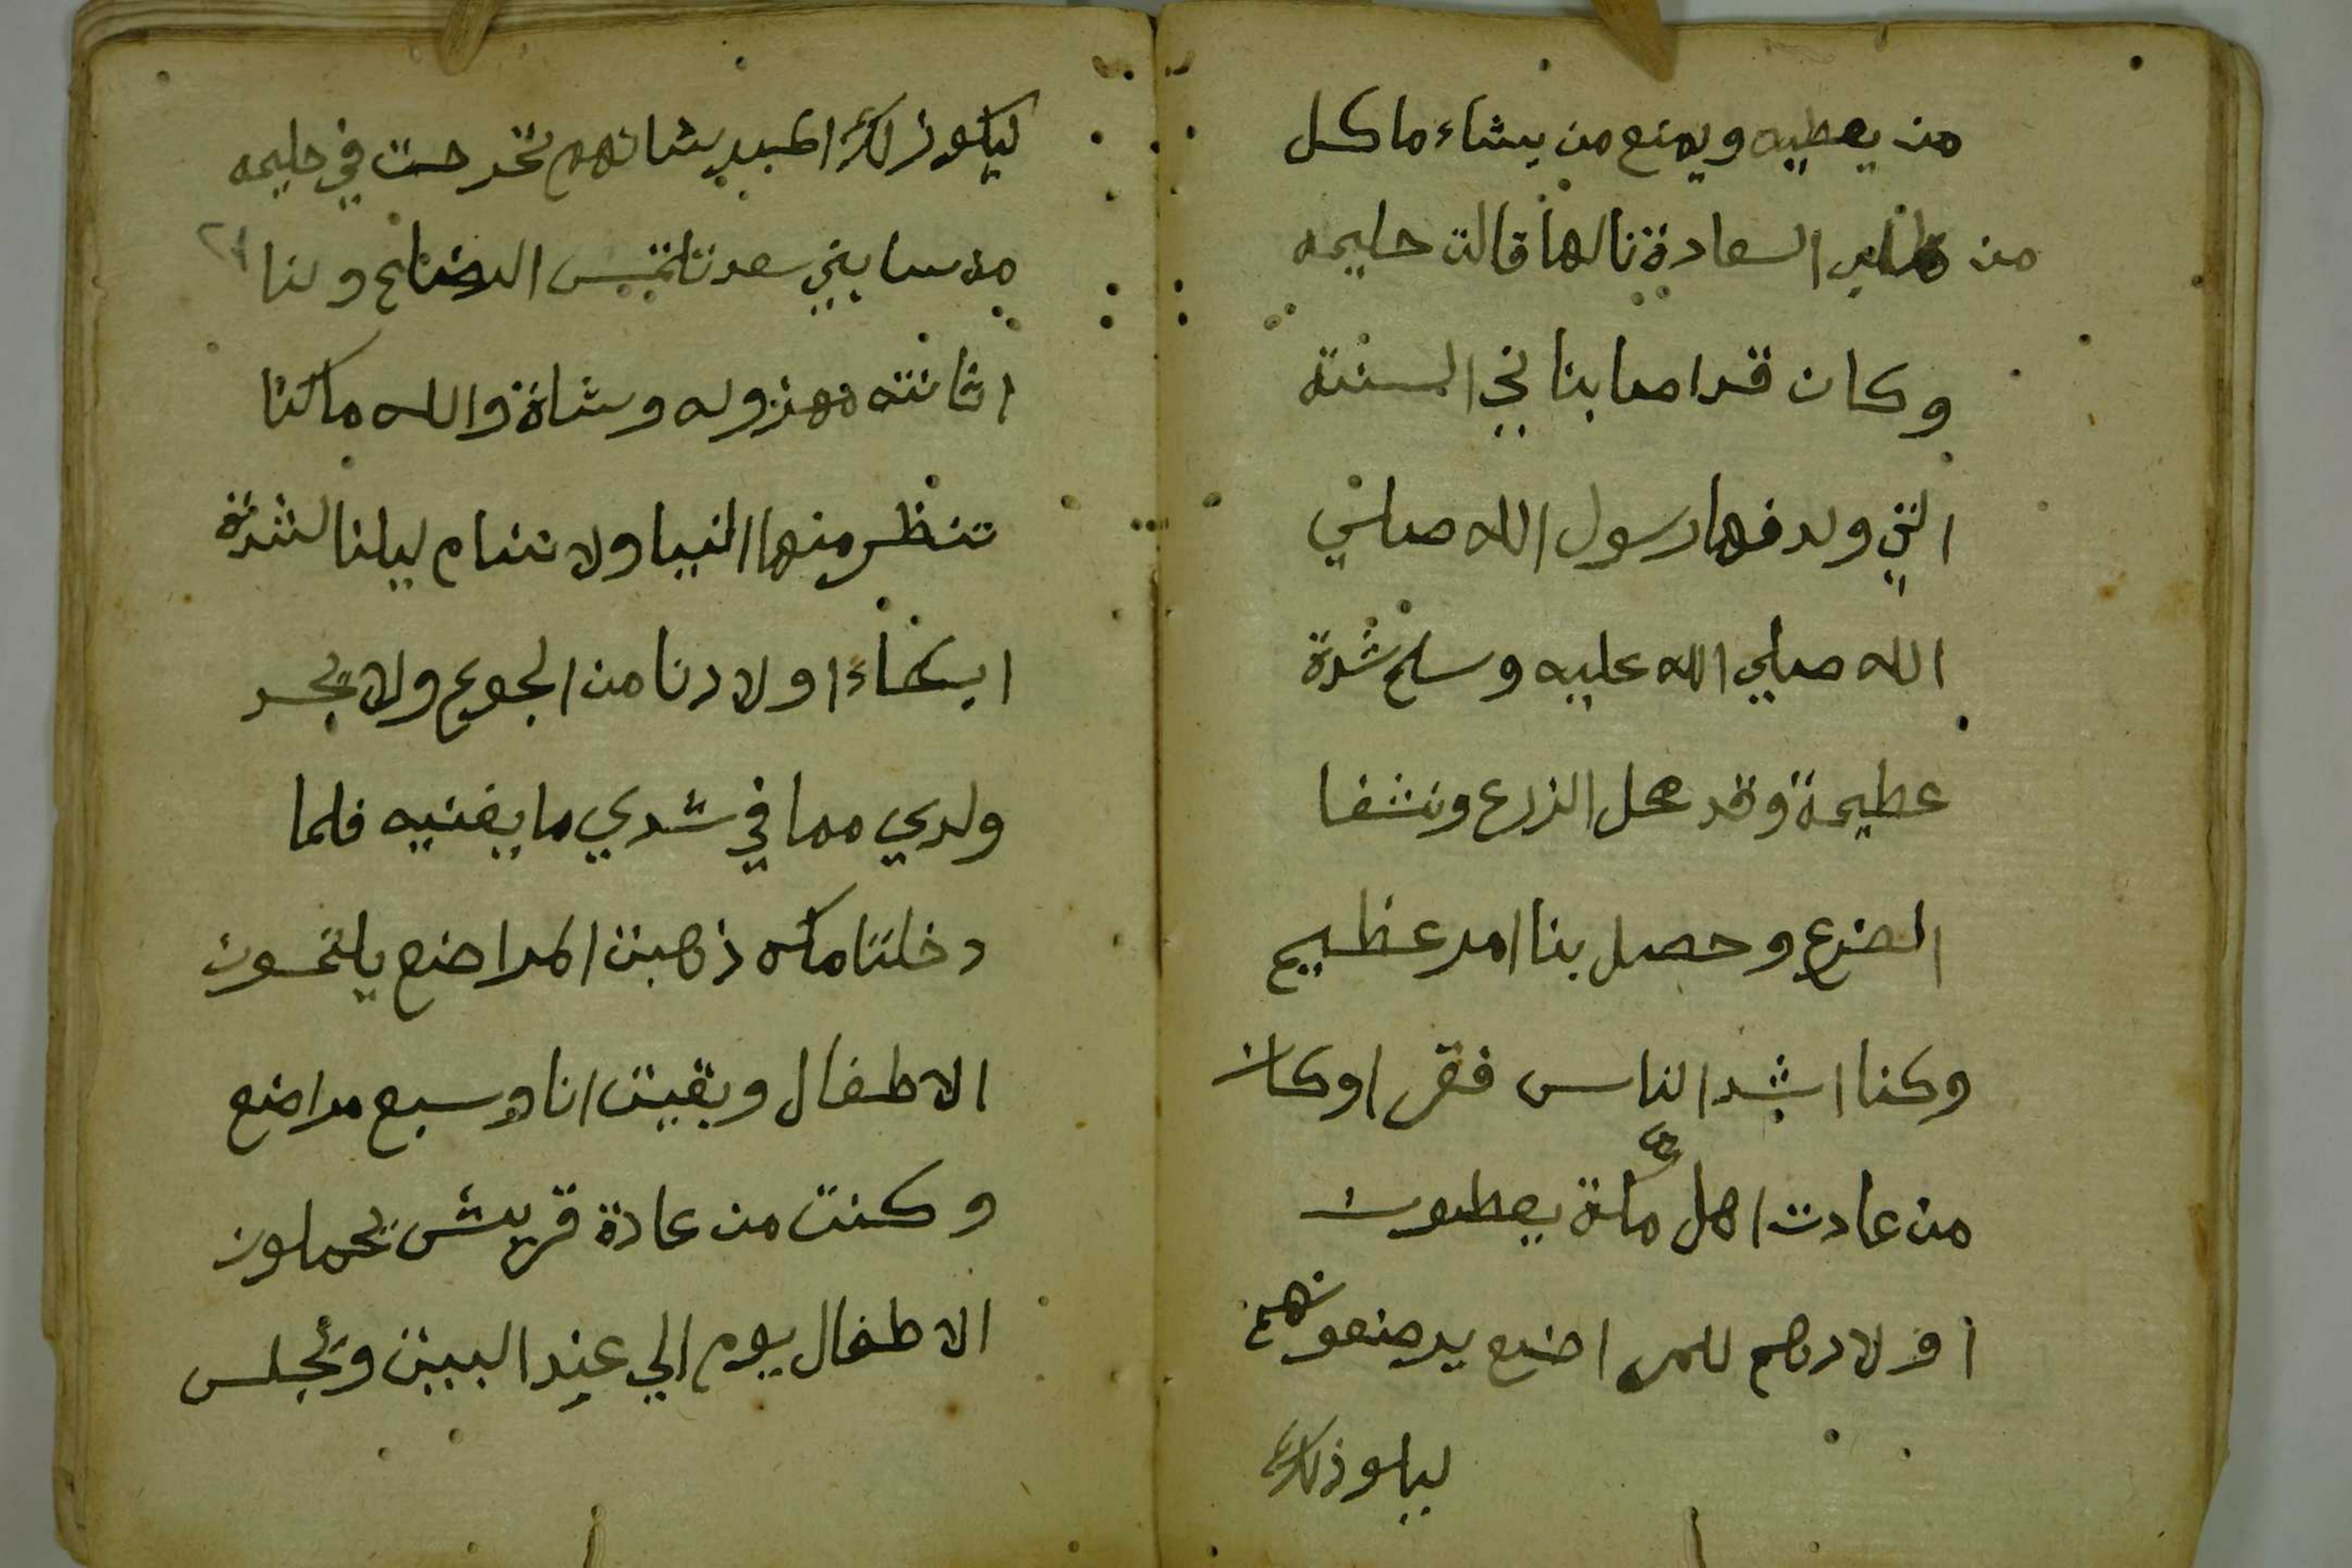 من يعطيه ويمنع من يشاء ما كل
من طلب السعادة نالها قالت حليمه
وكان قد اصابنا في السنته
التي ولد فيها رسول الله صلي
الله صلي الله عليه وسلم شدة
عظيمة وقد محل الزرع ونشفا
الضرع وحصل بنا امر عظيم
وكنا اشد الناس فقرا وكان
من عادت اهل مكة يعطون
اولادهم للمراضع يرضعونهم
ليكو ذلك
ليكو ذلك اكبر بشانهم فخرجت في حليمه
من نسا بني سعد نلتمس الرضاع وبنا
اتانته مهزوله وشاة والله ما كنا
تنظر منها النيا ولا ننام ليلنا لشدة
ابكاء اولادنا من الجوع ولا يجد
ولدي مما في ثدي ما يغنيه فلما
دخلنا مكه ذهبت المراضع يلتمسون
الاطفال وبقيت انا وسبع مراضع
وكنت من عادة قريش يحملون
الاطفال يوم الي عند البيت وتجلس